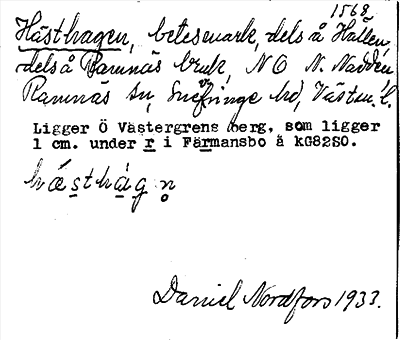 1568.
Hästhagen, betesmark, dels å Hallen,
dels å Ramnäs bruk, NO N. Nadden,
Ramnäs sn, Snevringe hd, Västm. l.
Ligger Ö Västergrens berg, som ligger
1 cm. under r i Färmansbo å kG82SO.
hæ̀sthág n̥
Daniel Nordfors 1933.